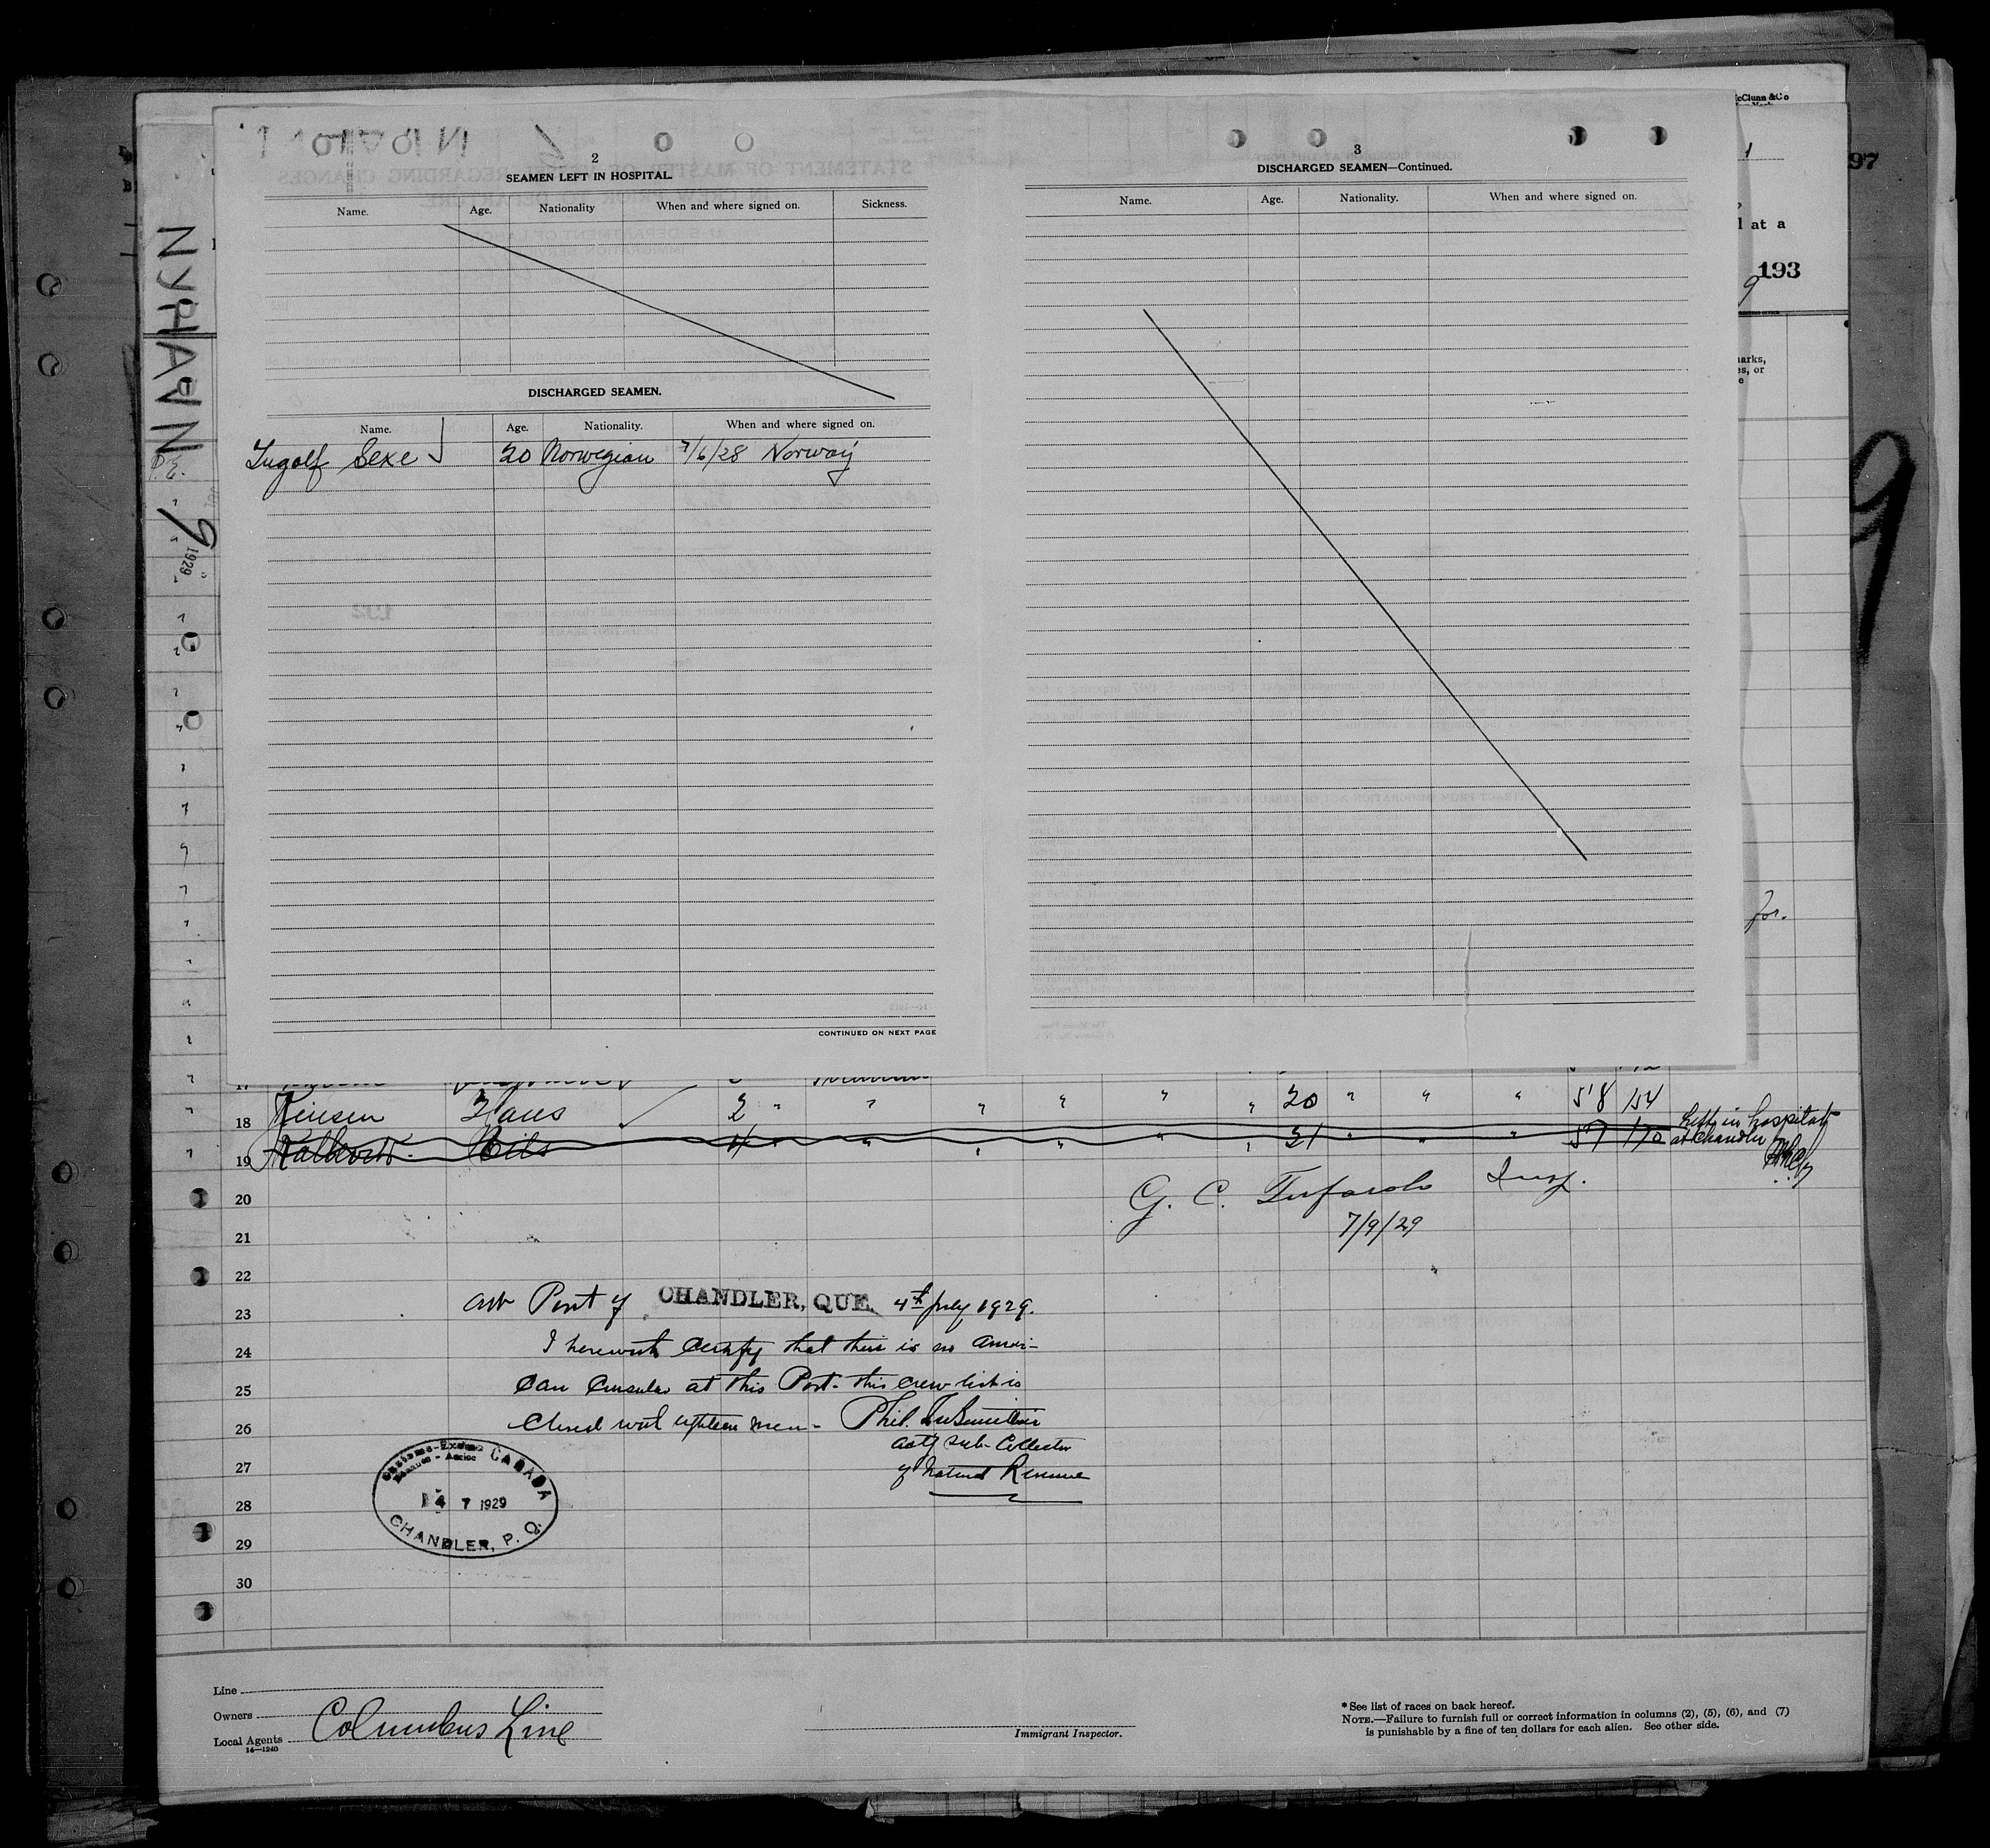 2
SEAMEN LEFT IN HOSPITAL.
Name. Age. Nationality When and where signed on. Sickness.
DISCHARGED SEAMEN.
Name. Age. Nationality. When and where signed on.
Ingolf Sexe 20 Norwegian 7/6/28 Norway
CONTINUED ON NEXT PAGE
3
DISCHARGED SEAMEN—Continued.
Name. Age. Nationality. When and where signed on.
McClunn & Co
97
l at a
193
9
arks,
es, or
e
for.
NYHAVN
P.E.
9
1929
9
17
18 Jensen Hans 2 " " " " " " 20 " " " 5'8 154
19 Nils 4 " " " " " " 21 " " " 5'7 170 Left in hospital
at Chandler
20
G. C. Tufarolo Insp.
21
7/9/29
22
23 Port of CHANDLER, QUE. 4th July 1929.
24 I herewith certify that there is no Ameri-
25 can Consular at this Port. this crew list is
26 closed with eighteen men - Phil.
actg Sub-Collector
27 of National Revenue
Customs-Excise CANADA
28 4 7 1929
29 CHANDLER, P. Q.
30
Line
Owners
Local Agents Columbus Line
14—1240
Immigrant Inspector.
* See list of races on back hereof.
NOTE.—Failure to furnish full or correct information in columns (2), (5), (6), and (7)
is punishable by a fine of ten dollars for each alien. See other side.